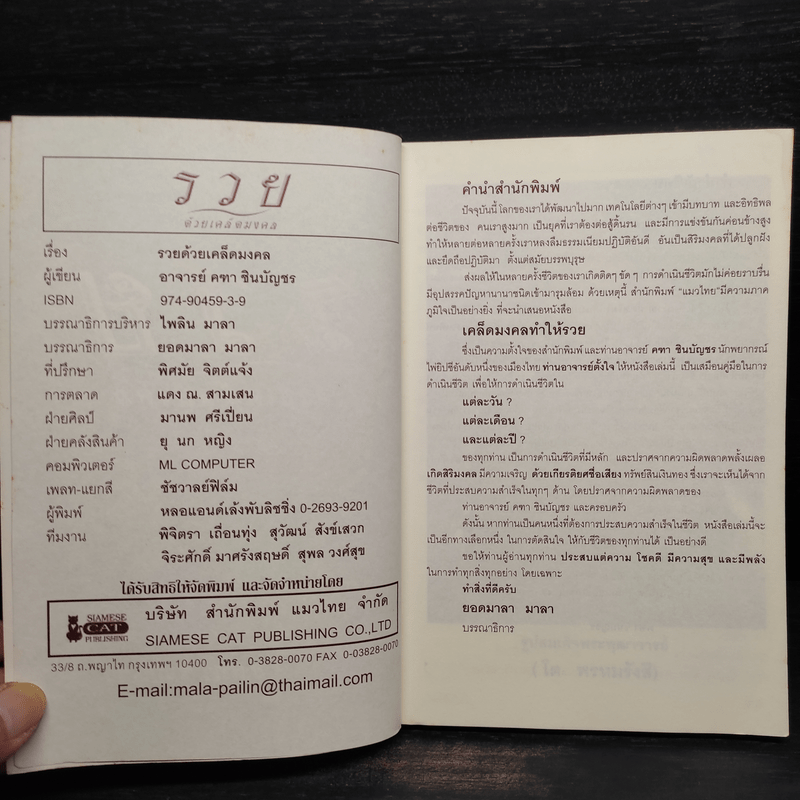 รวย
ด้วยเคล็ดมงคล
เรื่อง รวยด้วยเคล็ดมงคล
ผู้เขียน อาจารย์ คฑา ชินบัญชร
ISBN 974-90459-3-9
บรรณาธิการบริหาร ไพลิน มาลา
บรรณาธิการ ยอดมาลา มาลา
ที่ปรึกษา พิศมัย จิตต์แจ้ง
การตลาด แดง ณ. สามเสน
ฝ่ายศิลป์ มานพ ศรีเปี่ยน
ฝ่ายคลังสินค้า ยุ นก หญิง
คอมพิวเตอร์ ML COMPUTER
เพลท-แยกสี ชัชวาลย์ฟิล์ม
ผู้พิมพ์ หลอแอนด์เล้งพับลิชชิ่ง 0-2693-9201
ทีมงาน พิจิตรา เถื่อนทุ่ง สุวัฒน์ สังข์เสวก
จิระศักดิ์ มาศรังสฤษดิ์ สุพล วงศ์สุข
ได้รับสิทธิให้จัดพิมพ์ และจัดจำหน่ายโดย
SIAMESE CAT PUBLISHING
บริษัท สำนักพิมพ์ แมวไทย จำกัด
SIAMESE CAT PUBLISHING CO.,LTD
33/8 ถ.พญาไท กรุงเทพฯ 10400 โทร. 0-3828-0070 FAX 0-03828-0070
E-mail:mala-pailin@thaimail.com
คำนำสำนักพิมพ์
ปัจจุบันนี้ โลกของเราได้พัฒนาไปมาก เทคโนโลยีต่างๆ เข้ามีบทบาท และอิทธิพล
ต่อชีวิตของ คนเราสูงมาก เป็นยุคที่เราต้องต่อสู้ดิ้นรน และมีการแข่งขันกันค่อนข้างสูง
ทำให้หลายต่อหลายครั้งเราหลงลืมธรรมเนียมปฏิบัติอันดี อันเป็นสิริมงคลที่ได้ปลูกฝัง
และยึดถือปฏิบัติมา ตั้งแต่สมัยบรรพบุรุษ
ส่งผลให้ในหลายครั้งชีวิตของเราเกิดติดๆ ขัด ๆ การดำเนินชีวิตมักไม่ค่อยราบรื่น
มีอุปสรรคปัญหานานาชนิดเข้ามารุมล้อม ด้วยเหตุนี้ สำนักพิมพ์ "แมวไทย" มีความภาค
ภูมิใจเป็นอย่างยิ่ง ที่จะนำเสนอหนังสือ
เคล็ดมงคลทำให้รวย
ซึ่งเป็นความตั้งใจของสำนักพิมพ์ และท่านอาจารย์ คฑา ชินบัญชร นักพยากรณ์
ไพ่ยิปซีอันดับหนึ่งของเมืองไทย ท่านอาจารย์ตั้งใจ ให้หนังสือเล่มนี้ เป็นเสมือนคู่มือในการ
ดำเนินชีวิต เพื่อให้การดำเนินชีวิตใน
แต่ละวัน ?
แต่ละเดือน ?
และแต่ละปี ?
ของทุกท่าน เป็นการดำเนินชีวิตที่มีหลัก และปราศจากความผิดพลาดพลั้งเผลอ
เกิดสิริมงคล มีความเจริญ ด้วยเกียรติยศชื่อเสียง ทรัพย์สินเงินทอง ซึ่งเราจะเห็นได้จาก
ชีวิตที่ประสบความสำเร็จในทุกๆ ด้าน โดยปราศจากความผิดพลาดของ
ท่านอาจารย์ คฑา ชินบัญชร และครอบครัว
ดังนั้น หากท่านเป็นคนหนึ่งที่ต้องการประสบความสำเร็จในชีวิต หนังสือเล่มนี้จะ
เป็นอีกทางเลือกหนึ่ง ในการตัดสินใจ ให้กับชีวิตของทุกท่านได้ เป็นอย่างดี
ขอให้ผู้อ่านทุกท่าน ประสบแต่ความ โชคดี มีความสุข และมีพลัง
ในการทำทุกสิ่งทุกอย่าง โดยเฉพาะ
ทำสิ่งที่ดีครับ
ยอดมาลา มาลา
บรรณาธิการ